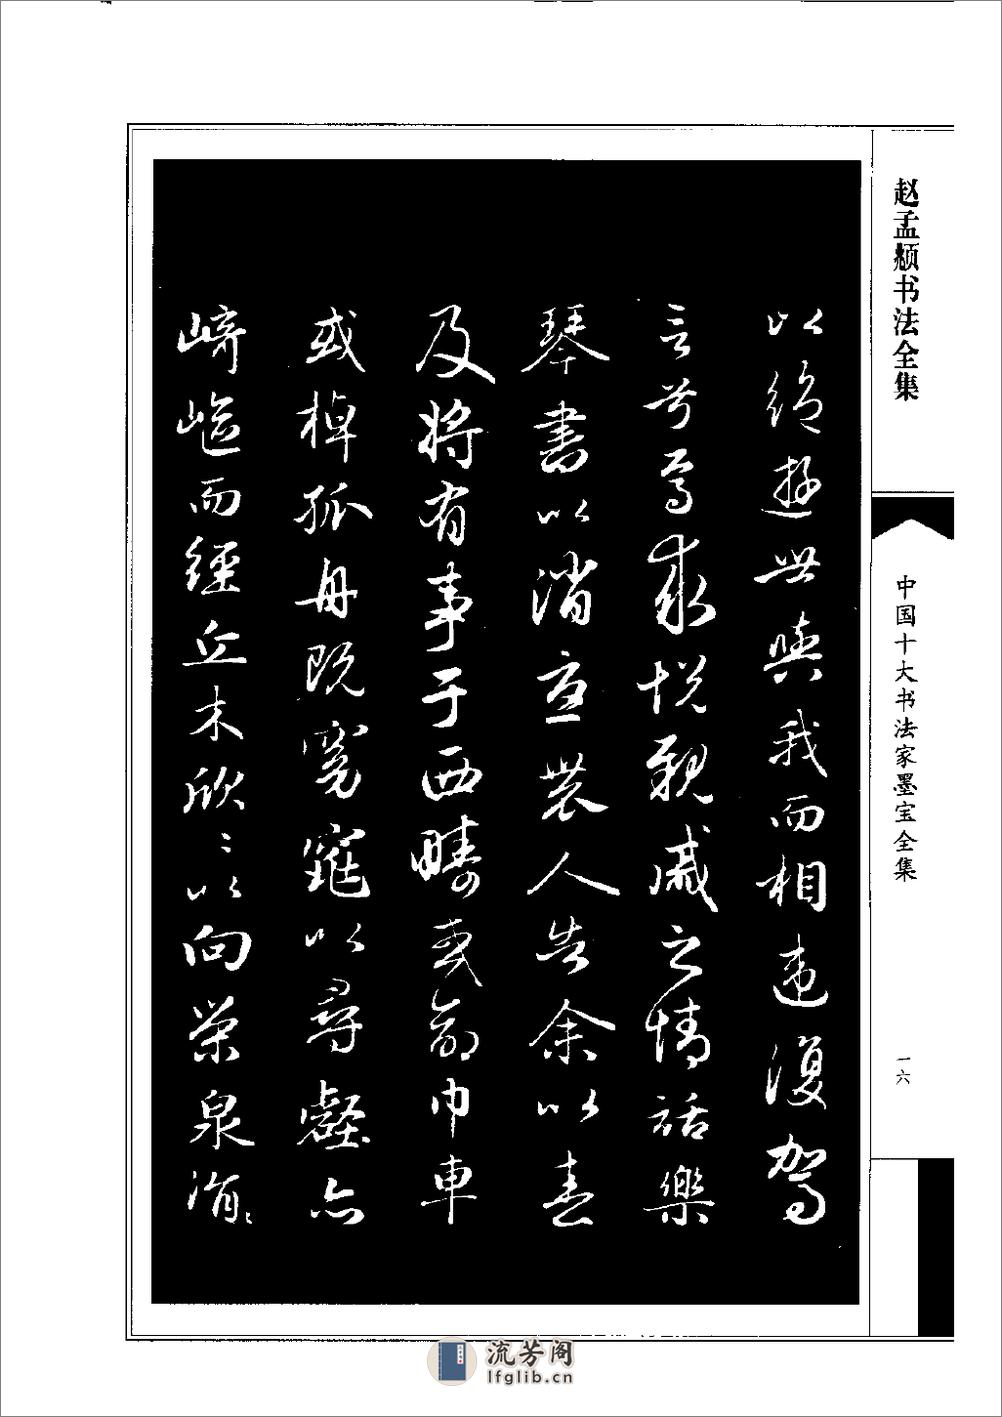 赵孟頫书法全集
中国十大书法家墨宝全集
一六
以絶遊世與我而相違復駕
言兮焉求悅親戚之情話樂
琴書以消憂農人告余以春
及將有事于西疇或命巾車
或棹孤舟既窈窕以尋壑亦
崎嶇而經丘木欣〻以向榮泉涓〻
流芳阁
lfglib.cn